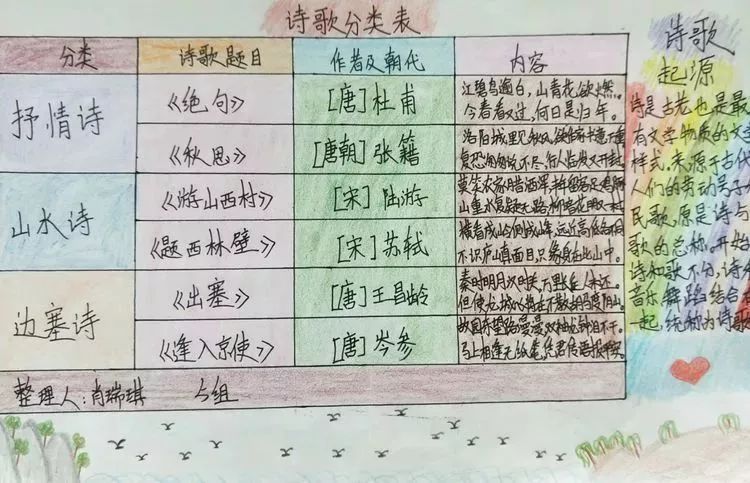 诗歌分类表
分类 诗歌题目 作者及朝代 内容
抒情诗
《绝句》 [唐]杜甫 江碧鸟逾白，山青花欲燃。
今春看又过，何日是归年。
《秋思》 [唐朝]张籍 洛阳城里见秋风，欲作家书意万重
复恐匆匆说不尽，行人临发又开封
山水诗
《游山西村》 [宋]陆游 莫笑农家腊酒浑，丰年留客足鸡豚
山重水复疑无路，柳暗花明又一村
《题西林壁》 [宋]苏轼 横看成岭侧成峰，远近高低各不同
不识庐山真面目，只缘身在此山中。
边塞诗
《出塞》 [唐]王昌龄 秦时明月汉时关，万里长征人未还。
但使龙城飞将在，不教胡马度阴山。
《逢入京使》 [唐]岑参 故园东望路漫漫，双袖龙钟泪不干。
马上相逢无纸笔，凭君传语报平安。
整理人：肖瑞琪 5组
诗歌
起源
诗是古老也是最
有文学物质的文学
样式。来源于古代
人们的劳动号子
民歌，原是诗与
歌的总称。开始
诗和歌不分，诗
音乐舞蹈结合
一起，统称为诗歌